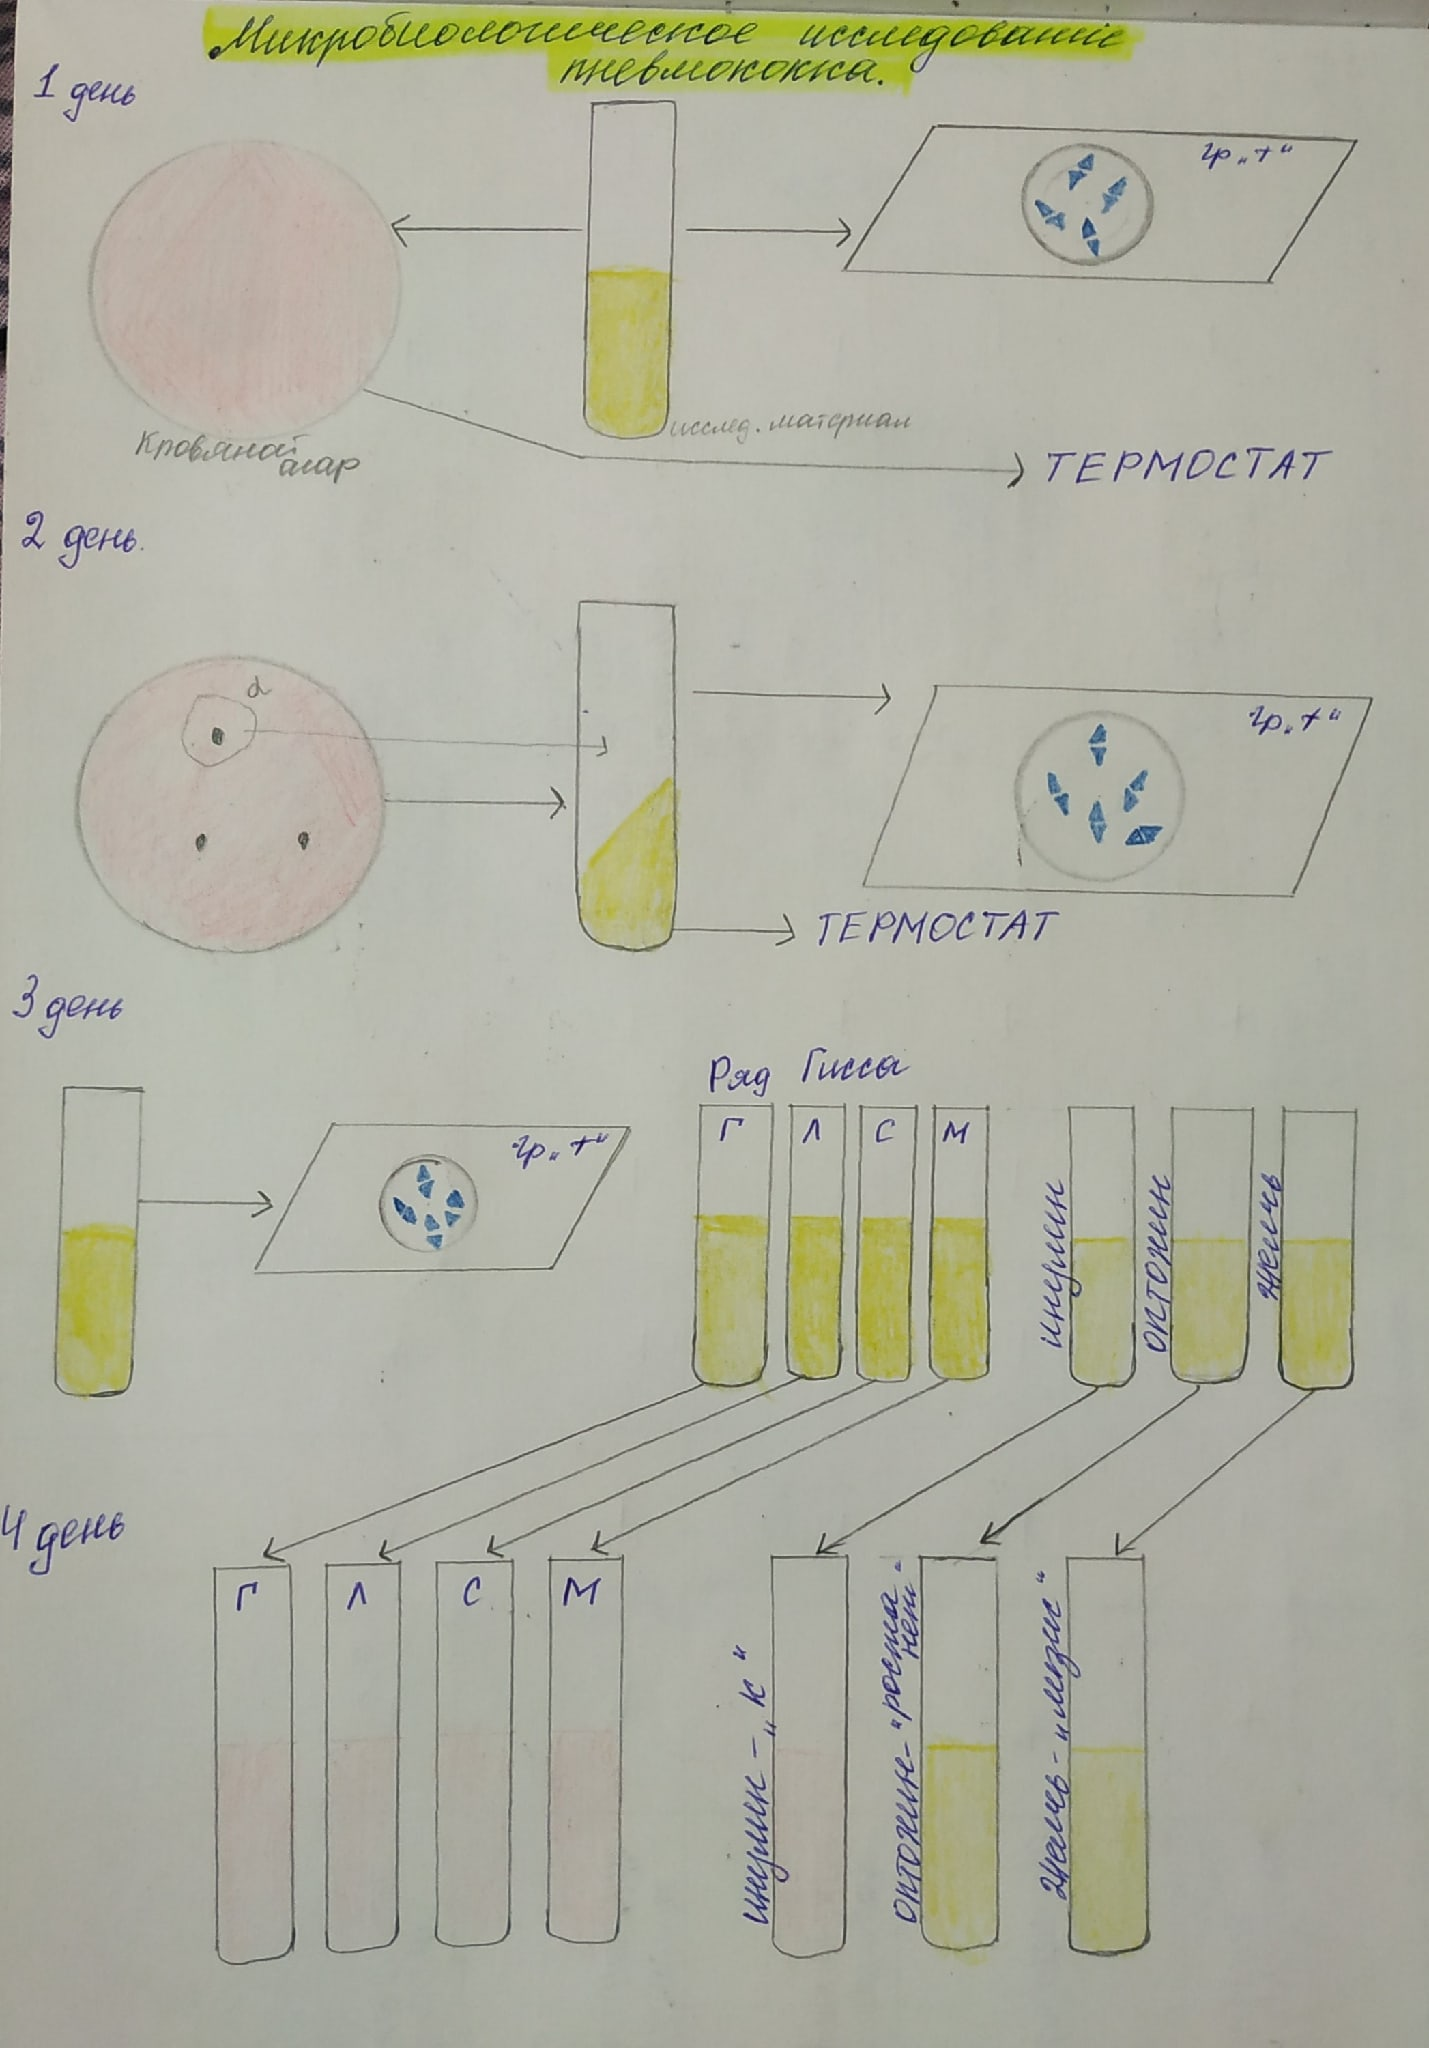 Микробиологическое исследование
пневмококка.
1 день
гр„+“
исслед. материал
Кровяной
агар
ТЕРМОСТАТ
2 день.
α
гр„+“
ТЕРМОСТАТ
3 день
Ряд Гисса
гр„+“
Г Л С М
инулин
оптохин
желчь
4 день
Г Л С М
инулин-„К“
оптохин-"роста
нет"
желчь-„лизис“